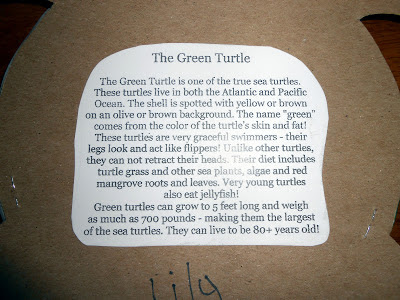 The Green Turtle
The Green Turtle is one of the true sea turtles.
These turtles live in both the Atlantic and Pacific
Ocean. The shell is spotted with yellow or brown
on an olive or brown background. The name "green"
comes from the color of the turtle's skin and fat!
These turtles are very graceful swimmers - their
legs look and act like flippers! Unlike other turtles,
they can not retract their heads. Their diet includes
turtle grass and other sea plants, algae and red
mangrove roots and leaves. Very young turtles
also eat jellyfish!
Green turtles can grow to 5 feet long and weigh
as much as 700 pounds - making them the largest
of the sea turtles. They can live to be 80+ years old!
Lila